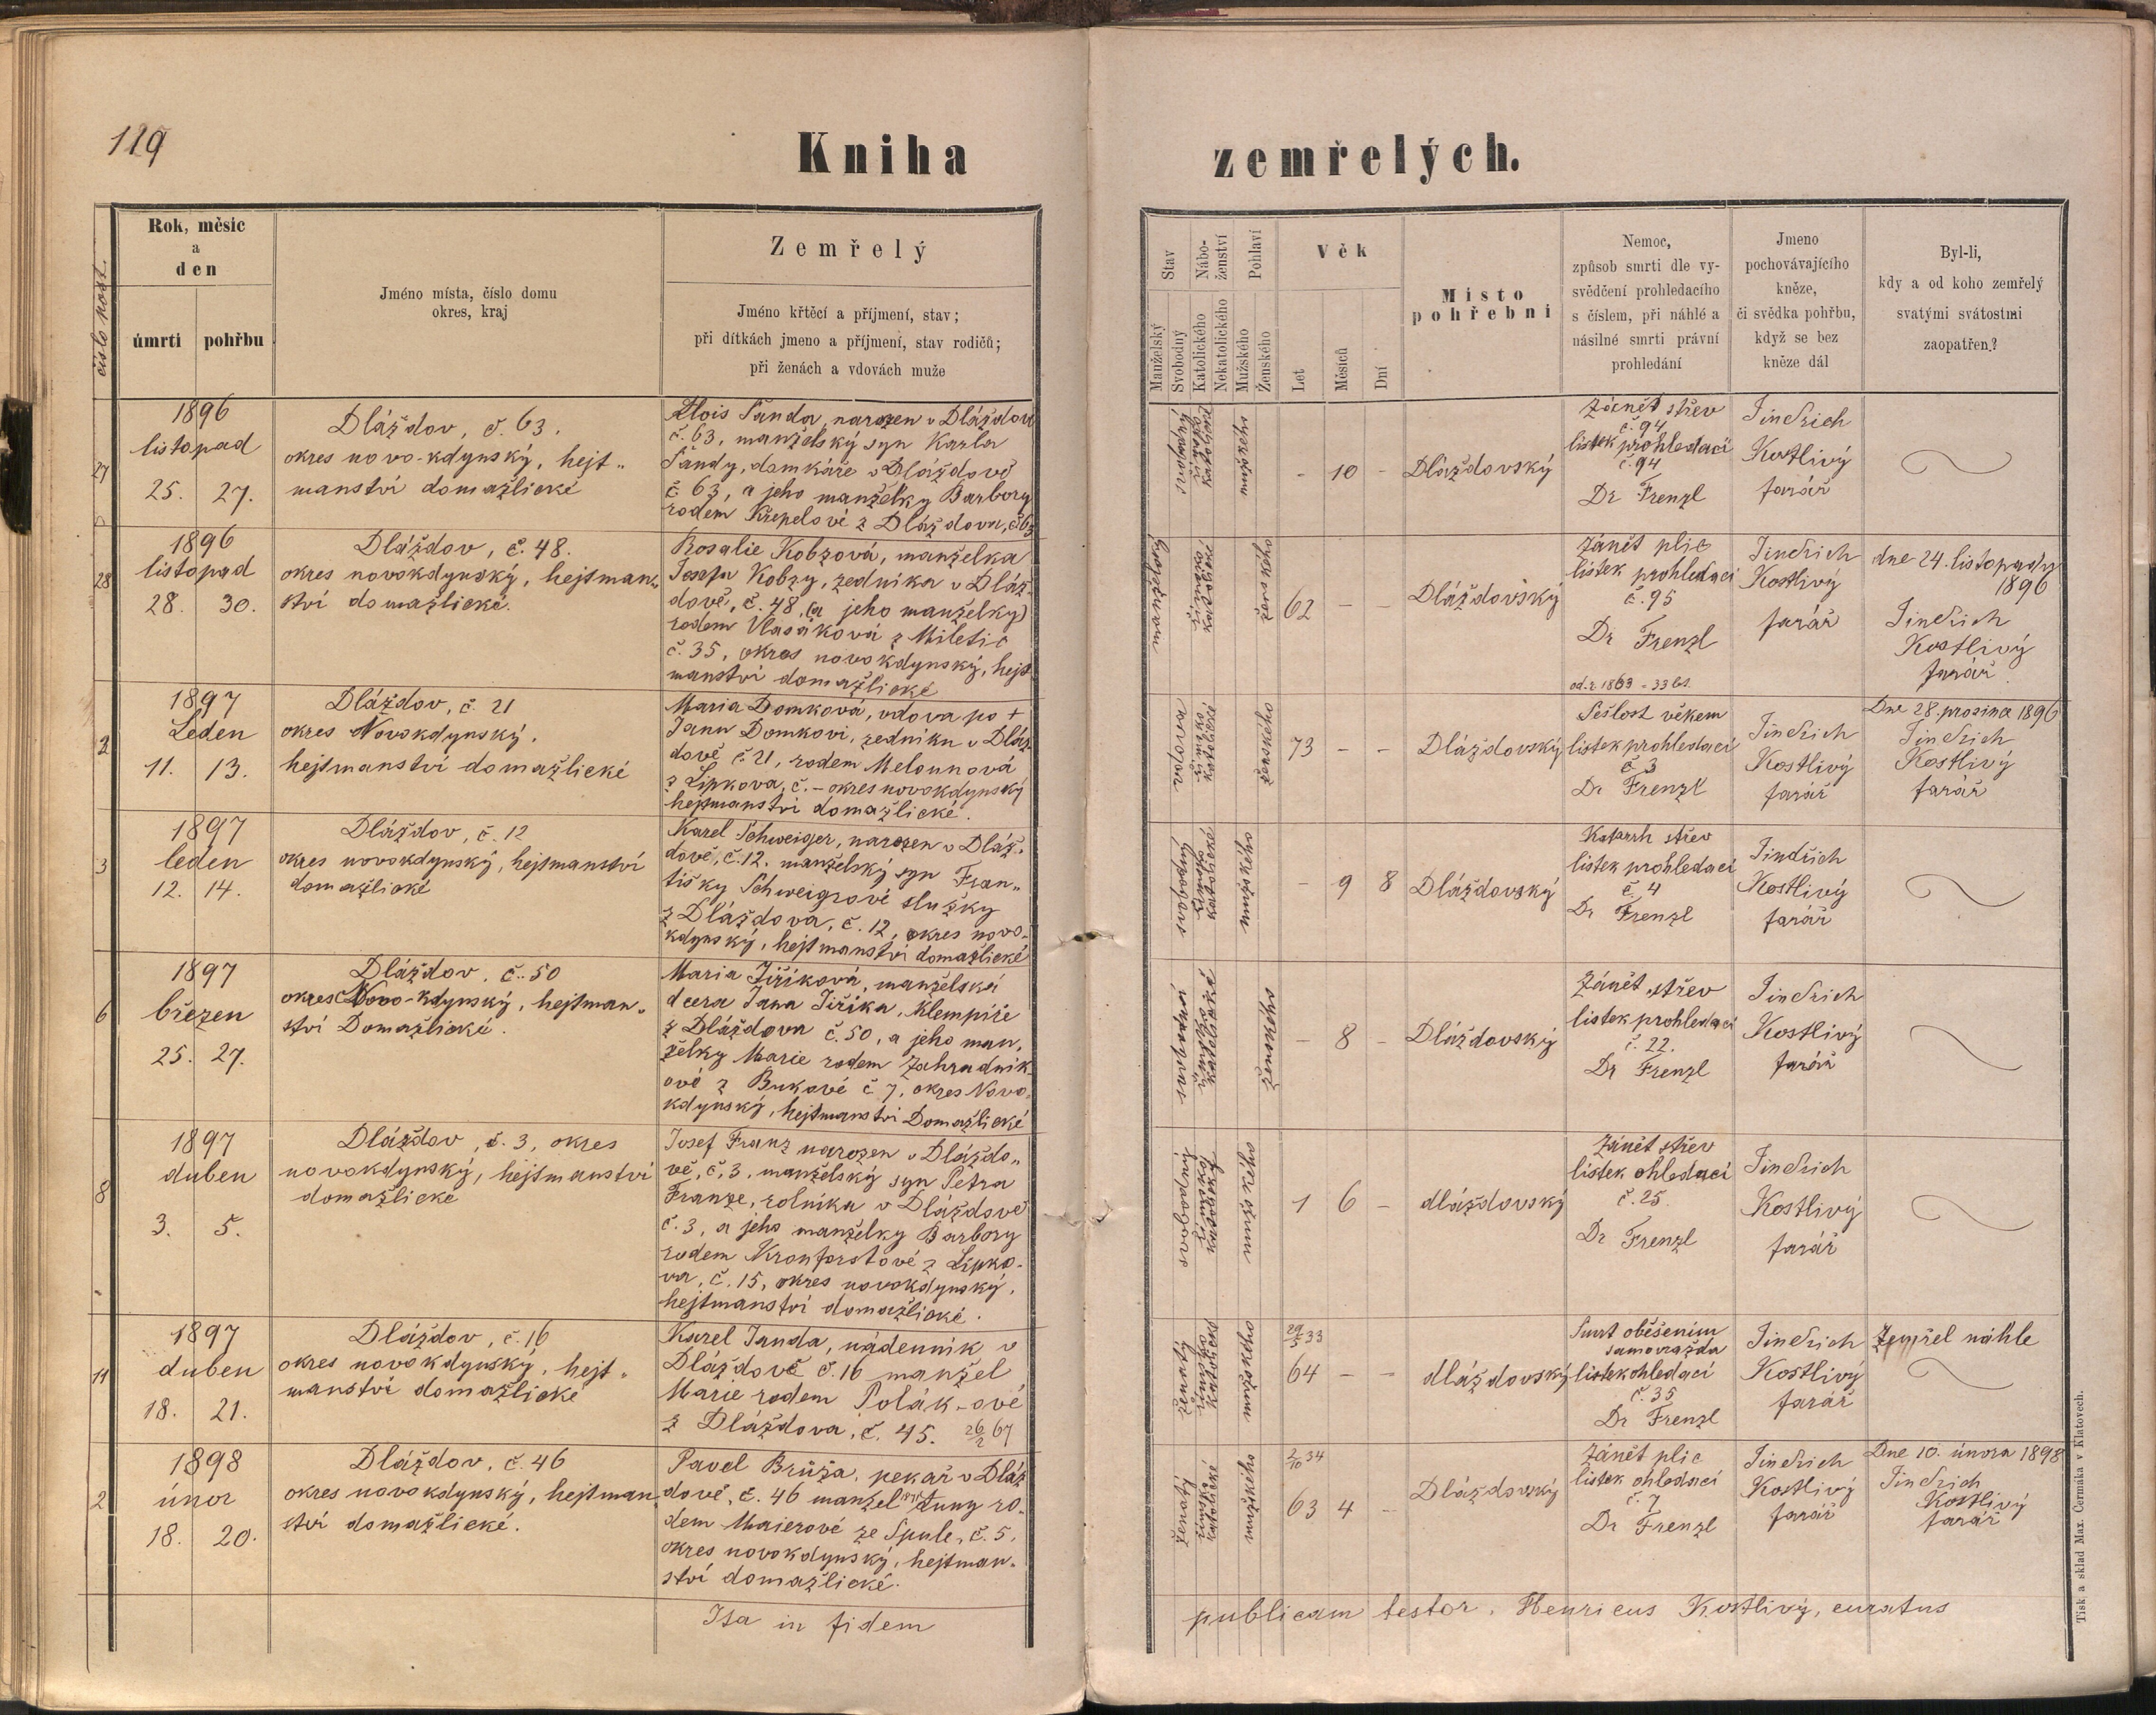 119
Kniha zemřelých.
číslo post.
Rok, měsíc
a
den
úmrtí pohřbu
Jméno místa, číslo domu
okres, kraj
Zemřelý
Jméno křtěcí a příjmení, stav;
při dítkách jmeno a příjmení, stav rodičů;
při ženách a vdovách muže
Stav
Manželský
Svobodný
Nábo-
ženství
Katolického
Nekatolického
Pohlaví
Mužského
Ženského
Věk
Let
Měsíců
Dní
Místo
pohřební
Nemoc,
způsob smrti dle vy-
svědčení prohledacího
s číslem, při náhlé a
násilné smrti právní
prohledání
Jmeno
pochovávajícího
kněze,
či svědka pohřbu,
když se bez
kněze dál
Byl-li,
kdy a od koho zemřelý
svatými svátostmi
zaopatřen?
27
1896
listopad
25. 27.
Dláždov, č. 63.
okres novo-kdynský, hejt„
manství domažlické
Alois Šanda, narozen v Dláždově
č. 63, manželský syn Karla
Šandy, domkáře v Dláždově
č 63, a jeho manželky Barbory
rodem Křepelové z Dláždova, č 63
svobodný
římsko
katolické
mužského
- 10 -
Dláždovský
Zánět střev
č. 94
lístek prohledací
č. 94
Dr Frenzl
Jindřich
Kostlivý
farář
28
1896
listopad
28. 30.
Dláždov, č. 48.
okres novokdynský, hejtman„
ství domažlické.
Rosalie Kobzová, manželka
Josefa Kobzy, zedníka v Dláž-
dově, č. 48, (a jeho manželky)
rodem Vlasáková z Miletic
č. 35, okres novokdynský, hejt
manství domažlické
manželský
římsko
katolické
ženského
62 - -
Dláždovský
Zánět plic
lístek prohledací
č. 95
Dr Frenzl
Jindřich
Kostlivý
farář
dne 24. listopadu
1896
Jindřich
Kostlivý
farář
2
1897
Leden
11. 13.
Dláždov, č. 21
okres Novokdynský,
hejtmanství domažlické
Maria Domková, vdova po +
Janu Domkovi, zedníku v Dláž
dově č. 21, rodem Melounová
z Lipkova, č. - okres novokdynský
hejtmanství domažlické.
vdova
římsko
katolické
ženského
73 - -
Dláždovský
od. r. 1863 - 33 let.
Sešlost věkem
lístek prohledací
č 3
Dr Frenzl
Jindřich
Kostlivý
farář
Dne 28. prosince 1896
Jindřich
Kostlivý
farář
3
1897
leden
12. 14.
Dláždov, č. 12
okres novokdynský, hejtmanství
domažlické
Karel Schweiger, narozen v Dláž„
dově, č. 12. manželský syn Fran„
tišky Schweigrové služky
z Dláždova, č. 12, okres novo-
kdynský, hejtmanství domažlické
svobodný
římsko
katolické
mužského
- 9 8
Dláždovský
Katarrh střev
lístek prohledací
č. 4
Dr Frenzl
Jindřich
Kostlivý
farář
6
1897
březen
25. 27.
Dláždov, č. 50
okres Novo-kdynský, hejtman„
ství Domažlické.
Maria Jiříková, manželská
dcera Jana Jiříka, klempíře
z Dláždova č. 50, a jeho man„
želky Marie rodem Zahradník
ové z Bukové č 7, okres Novo„
kdynský, hejtmanství Domažlické
svobodná
římsko
katolické
ženského
- 8 -
Dláždovský
Zánět střev
lístek prohledací
č. 22.
Dr Frenzl
Jindřich
Kostlivý
farář
8
1897
duben
3. 5.
Dláždov, č. 3, okres
novokdynský, hejtmanství
domažlické
Josef Franz narozen v Dláždo„
vě, č. 3, manželský syn Petra
Franze, rolníka v Dláždově
č. 3, a jeho manželky Barbory
rodem Kronforstové z Lipko-
va, č. 15, okres novokdynský,
hejtmanství domažlické.
svobodný
římsko
katolický
mužského
1 6 -
dláždovský
Zánět střev
lístek ohledací
č. 25.
Dr Frenzl
Jindřich
Kostlivý
farář
11
1897
duben
18. 21.
Dláždov, č. 16
okres novokdynský, hejt„
manství domažlické
Karel Janda, nádenník v
Dláždově č. 16 manžel
Marie rodem Polák-ové
z Dláždova, č. 45. 26/2 67
ženatý
římsko
katolický
mužského
29/5 33
64 - -
dláždovský
Smrt oběšením
samovražda
lístek ohledací
č. 35
Dr Frenzl
Jindřich
Kostlivý
farář
Zemřel náhle
2
1898
únor
18. 20.
Dláždov, č. 46
okres novokdynský, hejtman„
ství domažlické.
Pavel Brůža, pekař v Dláž
dově, č. 46 manžel Anny ro„
dem Maierové ze Spule, č. 5,
okres novokdynský, hejtman„
ství domažlické.
ženatý
římsko
katolické
mužského
2/10 34
63 4 -
Dláždovský
Zánět plic
lístek ohledací
č. 7
Dr Frenzl
Jindřich
Kostlivý
farář
Dne 10. února 1898
Jindřich
Kostlivý
farář
Ita in fidem publicam testor. Henricus Kostlivý, curatus
Tisk a sklad Max. Čermáka v Klatovech.